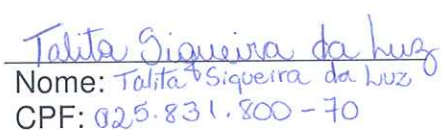 Talita Siqueira da Luz
Nome: Talita Siqueira da Luz
CPF: 025.831.800-70